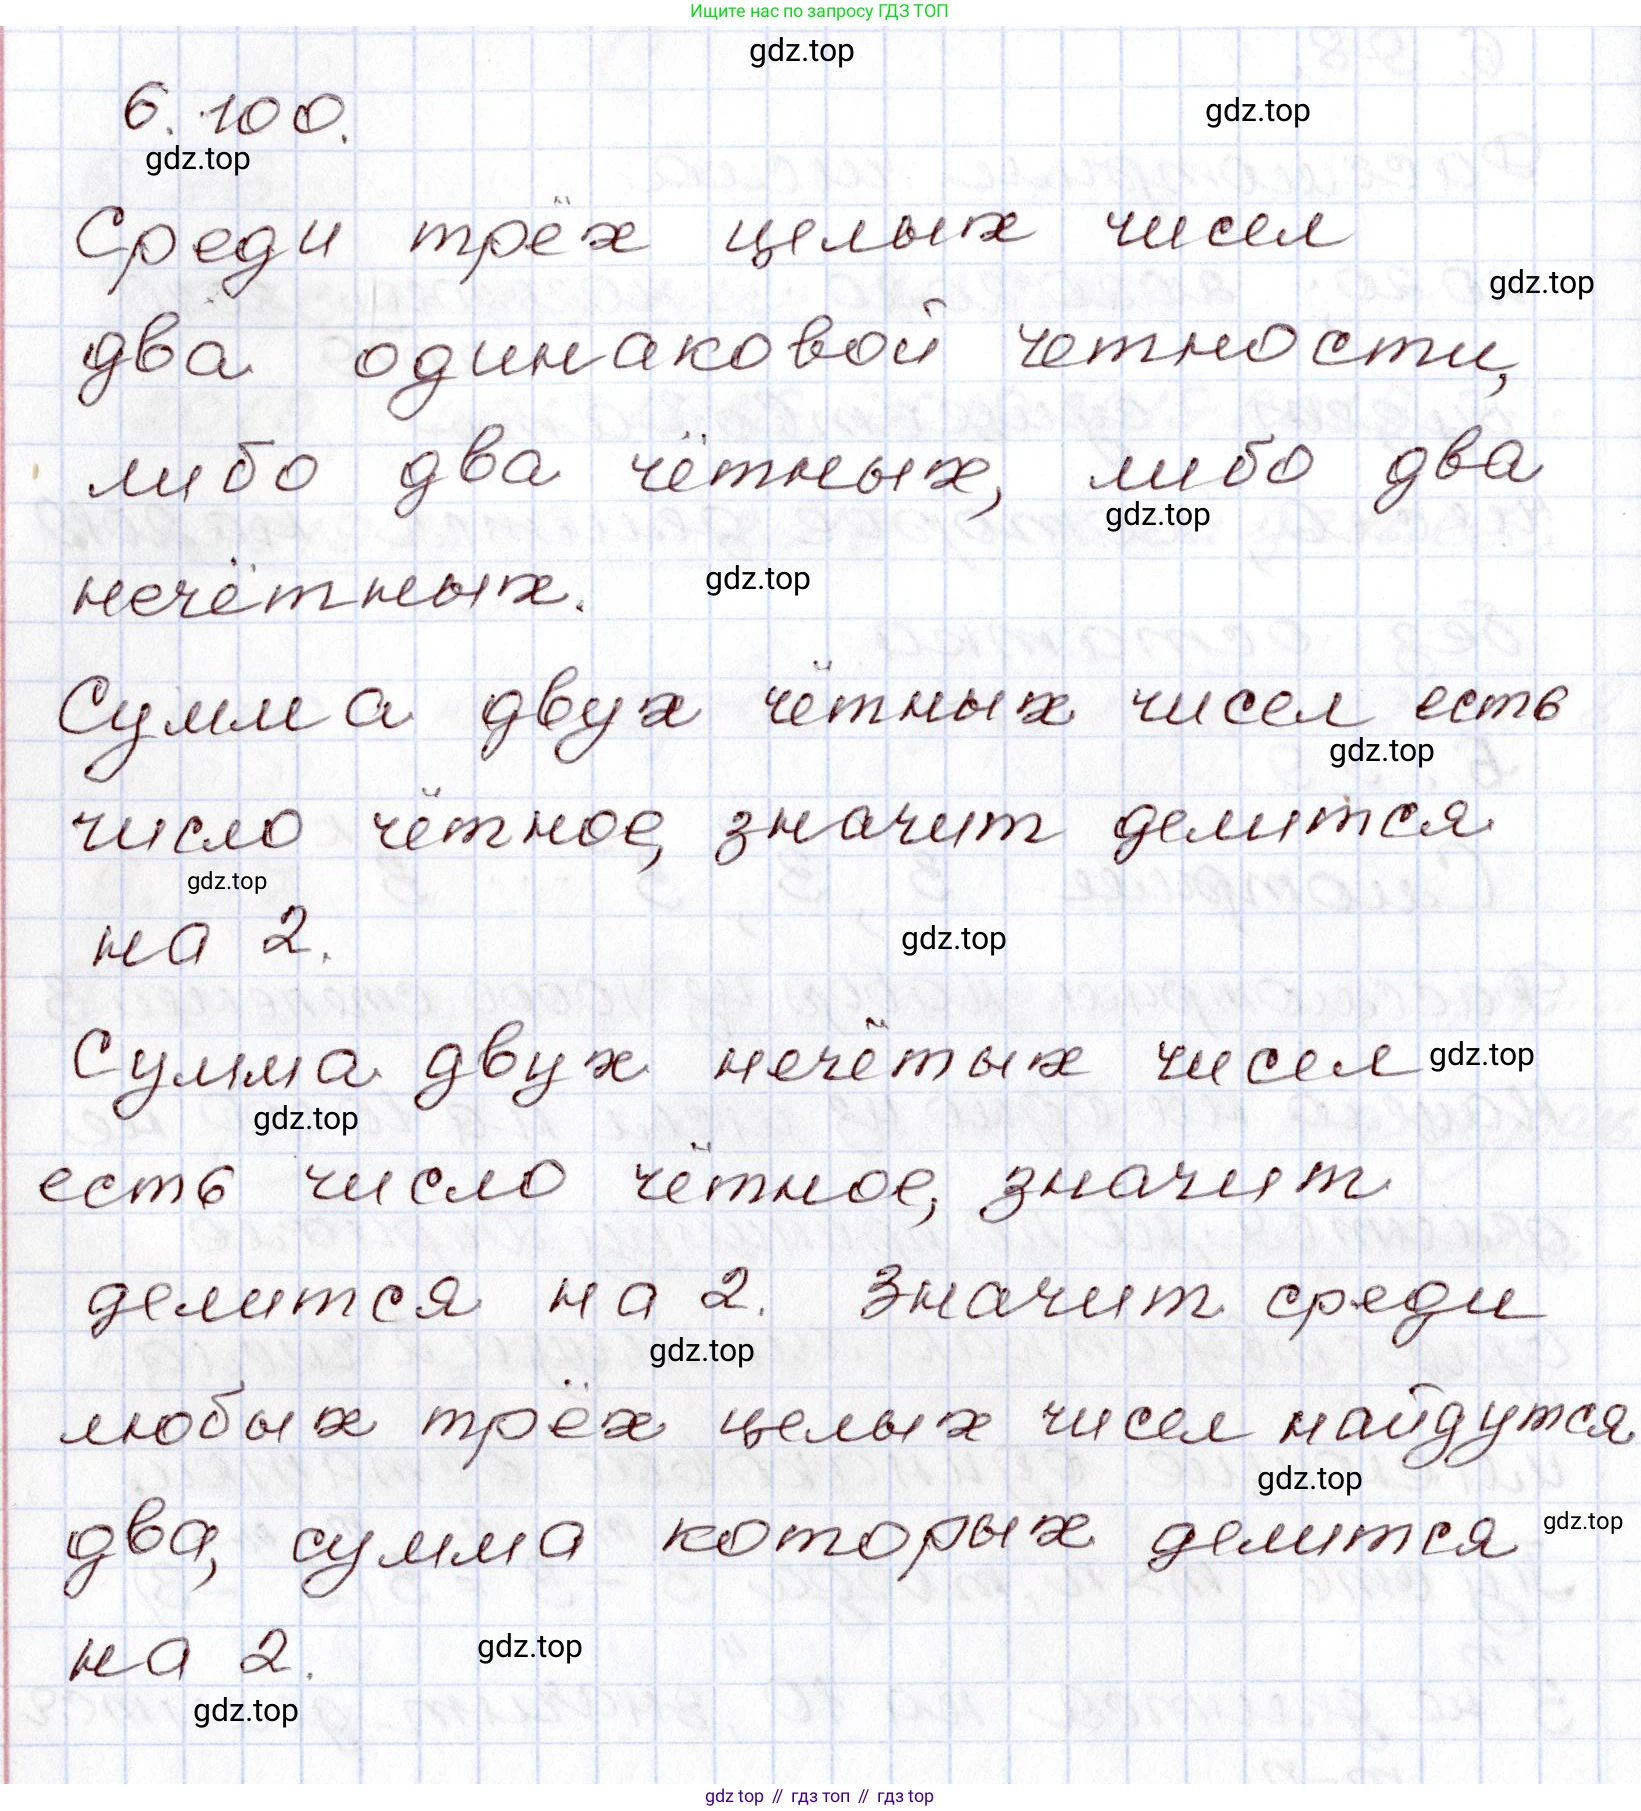 Ищите нас по запросу ГДЗ ТОП
gdz.top
6.100.
gdz.top
gdz.top
Среди трёх целых чисел
gdz.top
два одинаковой четности,
либо два чётных, либо два
gdz.top
нечётных.
gdz.top
Сумма двух чётных чисел есть
gdz.top
число чётное, значит делится
gdz.top
на 2.
gdz.top
Сумма двух нечётых чисел
gdz.top
gdz.top
есть число чётное, значит
делится на 2. Значит среди
gdz.top
любых трёх целых чисел найдутся
gdz.top
два, сумма которых делится
gdz.top
на 2.
gdz.top
gdz.top
gdz top // гдз топ // gdz top